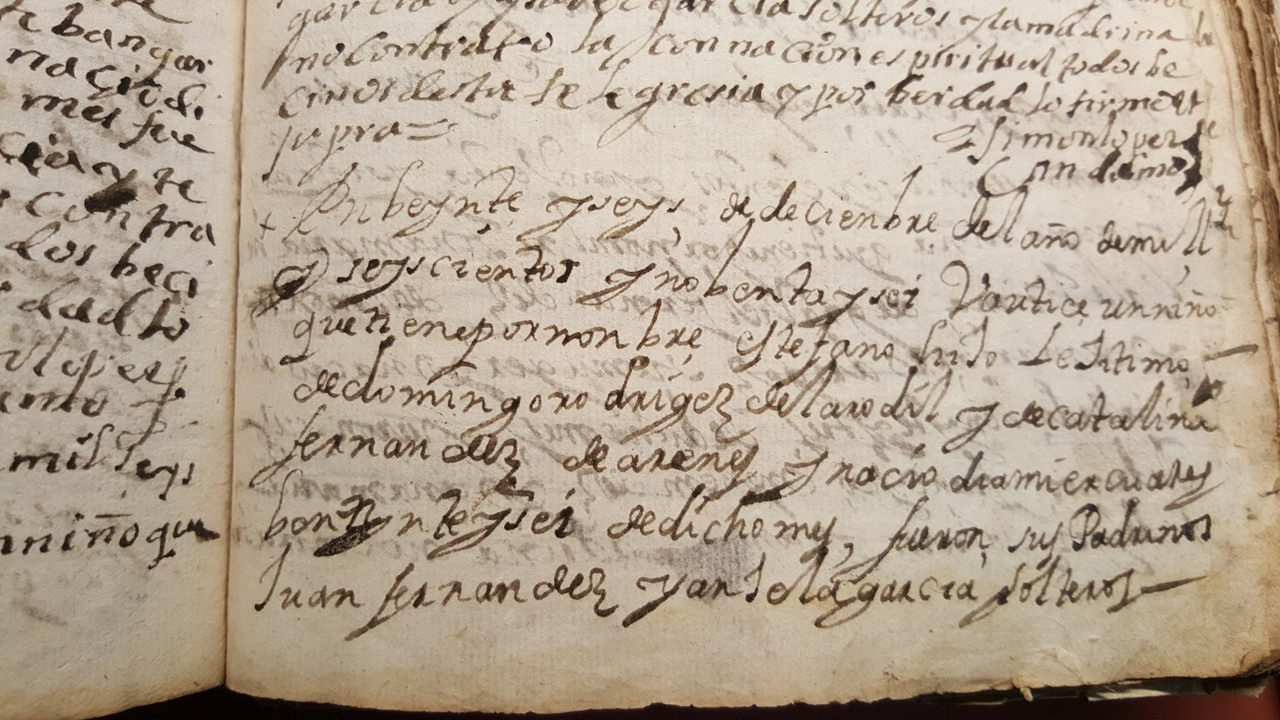 te bangar
nació di
mes fue
cia y te
contra
dos beci
dad lo
mil seys
niño que
garcia y ysabel garcia solteros y la madrina
no contrato la connacion espiritual todos be
cinos desta feligresia y por berdad lo firme ut
supra =
Simon lopez
Candamo
+ En beynte y seys de deciembre del año de mill
seyscientos y nobenta y sei Vautice un niño
que tiene por nonbre estefano hijo Lejitimo
de domingo rodrigez del arodil y de catalina
fernandez de arenes y nacio dia miercuales
beynte y sei de dicho mes, fueron sus Padrinos
Juan fernandez y anjela garcia solteros